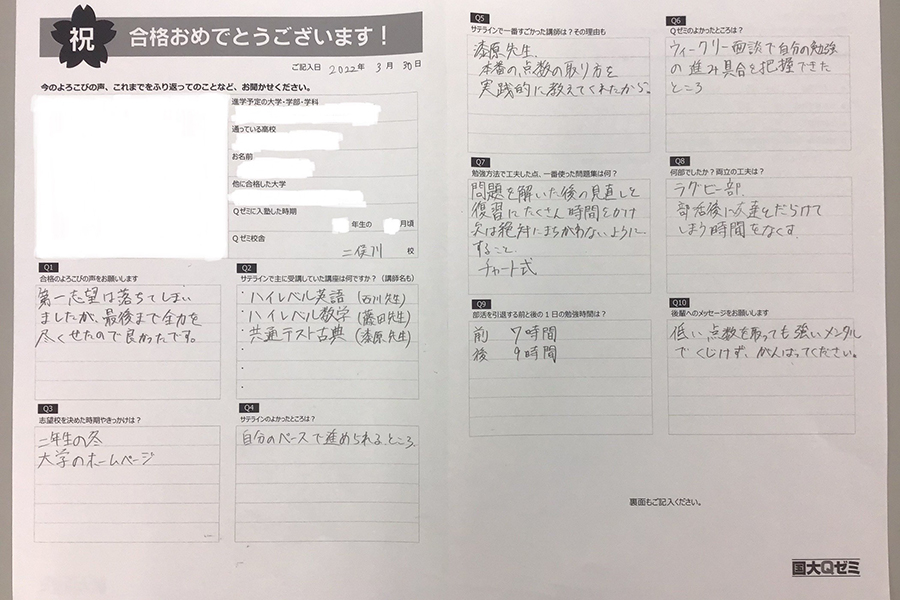 祝
合格おめでとうございます!
ご記入日 2022年 3月 30日
今のよろこびの声、これまでをふり返ってのことなど、お聞かせください。
進学予定の大学・学部・学科
通っている高校
お名前
他に合格した大学
Qゼミに入塾した時期
年生の 月頃
Qゼミ校舎
二俣川 校
Q1
合格のよろこびの声をお願いします
第一志望は落ちてしまい
ましたが、最後まで全力を
尽くせたので良かったです。
Q2
サテラインで主に受講していた講座は何ですか?(講師名も)
・ハイレベル英語(石川先生)
・ハイレベル数学(藤田先生)
・共通テスト古典(漆原先生)
・
・
Q3
志望校を決めた時期やきっかけは?
二年生の冬
大学のホームページ
Q4
サテラインのよかったところは?
自分のペースで進められるところ
Q5
サテラインで一番すごかった講師は?その理由も
漆原先生.
本番の点数の取り方を
実践的に教えてくれたから。
Q6
Qゼミのよかったところは?
ウィークリー面談で自分の勉強
の進み具合を把握できた
ところ
Q7
勉強方法で工夫した点、一番使った問題集は何?
問題を解いた後の見直しと
復習にたくさん時間をかけ
次は絶対にまちがわないように
すること.
チャート式
Q8
何部でしたか?両立の工夫は?
ラグビー部.
部活後に友達とだらけて
しまう時間をなくす.
Q9
部活を引退する前と後の1日の勉強時間は?
前 7時間
後 9時間
Q10
後輩へのメッセージをお願いします
低い点数を取っても強いメンタル
でくじけず、がんばってください。
裏面もご記入ください。
国大Qゼミ